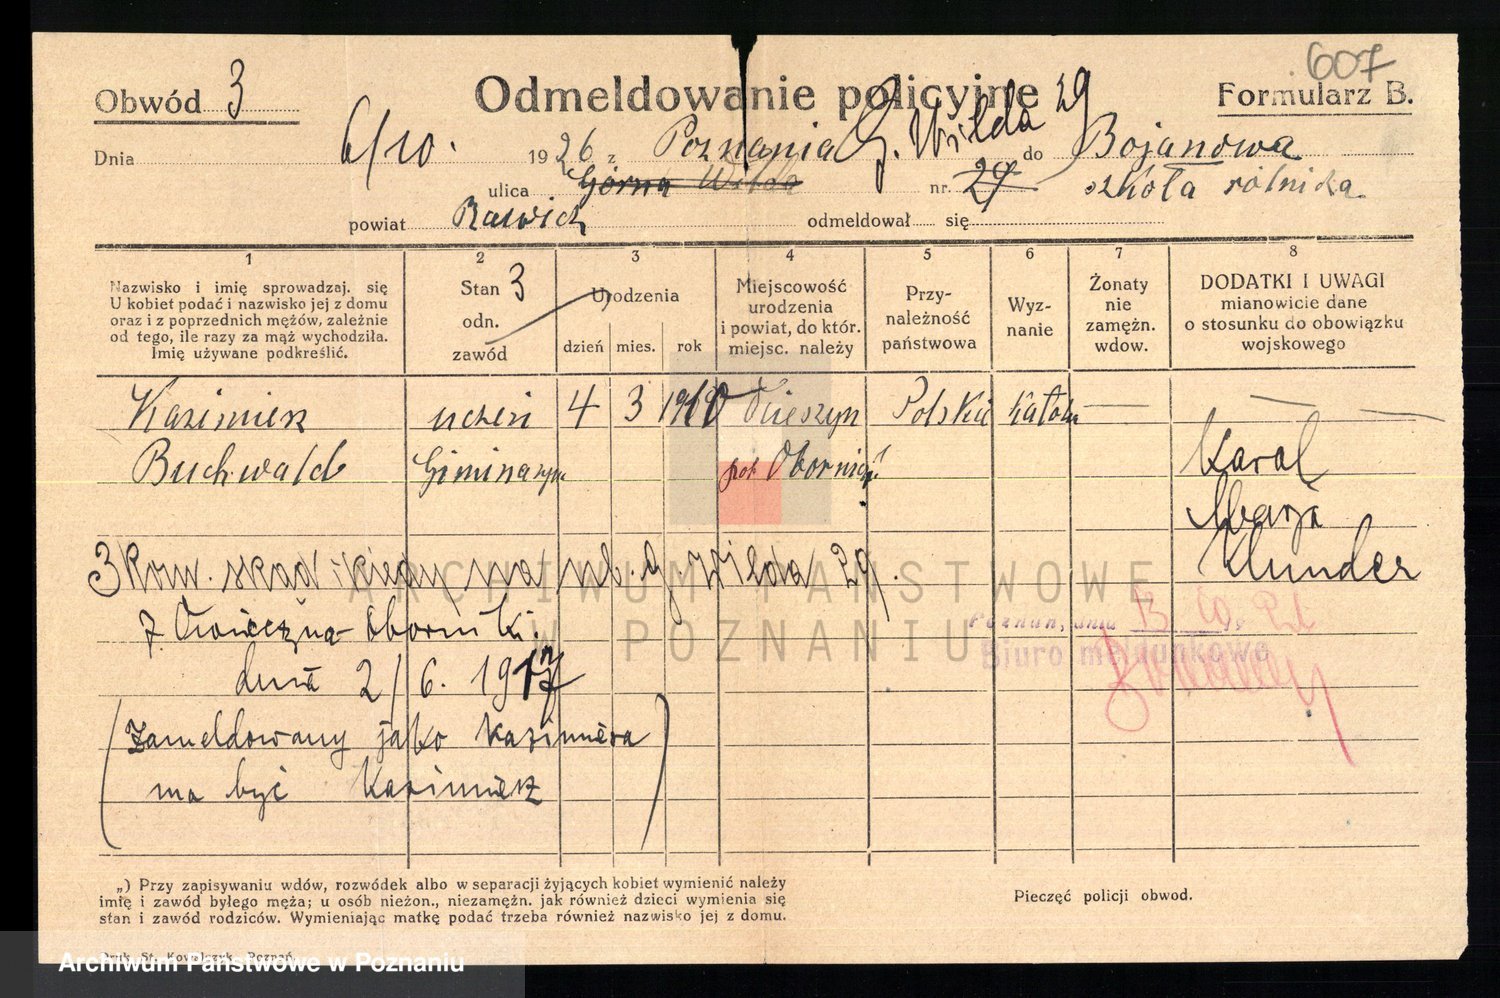 607
Obwód 3
Odmeldowanie policyjne
Formularz B.
Dnia 6/10. 1926 z Poznania G. Wilda 29 do Bojanowa
ulica Górna Wilda nr. 29 szkoła rolnicza
powiat Rawicz odmeldował się
1 2 3 4 5 6 7 8
Nazwisko i imię sprowadzaj. się
U kobiet podać i nazwisko jej z domu
oraz i z poprzednich mężów, zależnie
od tego, ile razy za mąż wychodziła.
Imię używane podkreślić.
Stan 3
odn.
zawód
Urodzenia
dzień mies. rok
Miejscowość
urodzenia
i powiat, do któr.
miejsc. należy
Przy-
należność
państwowa
Wyz-
nanie
Żonaty
nie
zamężn.
wdow.
DODATKI I UWAGI
mianowicie dane
o stosunku do obowiązku
wojskowego
Kazimierz uczeń 4 3 1910 Polska katol.
Buchwald Gimnazyn pow. Oborniki
Karol
Marja
Klunder
3 Kom. skąd i kiedy na ul. G. Wilda 29.
Oborniki.
dnia 2/6. 1917
(Zameldowany jako Kazimiera
ma być Kazimierz)
Poznań, dnia
Biuro meldunkowe
„) Przy zapisywaniu wdów, rozwódek albo w separacji żyjących kobiet wymienić należy
imię i zawód byłego męża; u osób nieżon., niezamężn. jak również dzieci wymienia się
stan i zawód rodziców. Wymieniając matkę podać trzeba również nazwisko jej z domu.
Pieczęć policji obwod.
Druk. St. Kowalczyk, Poznań.
ARCHIWUM PAŃSTWOWE
W POZNANIU
Archiwum Państwowe w Poznaniu